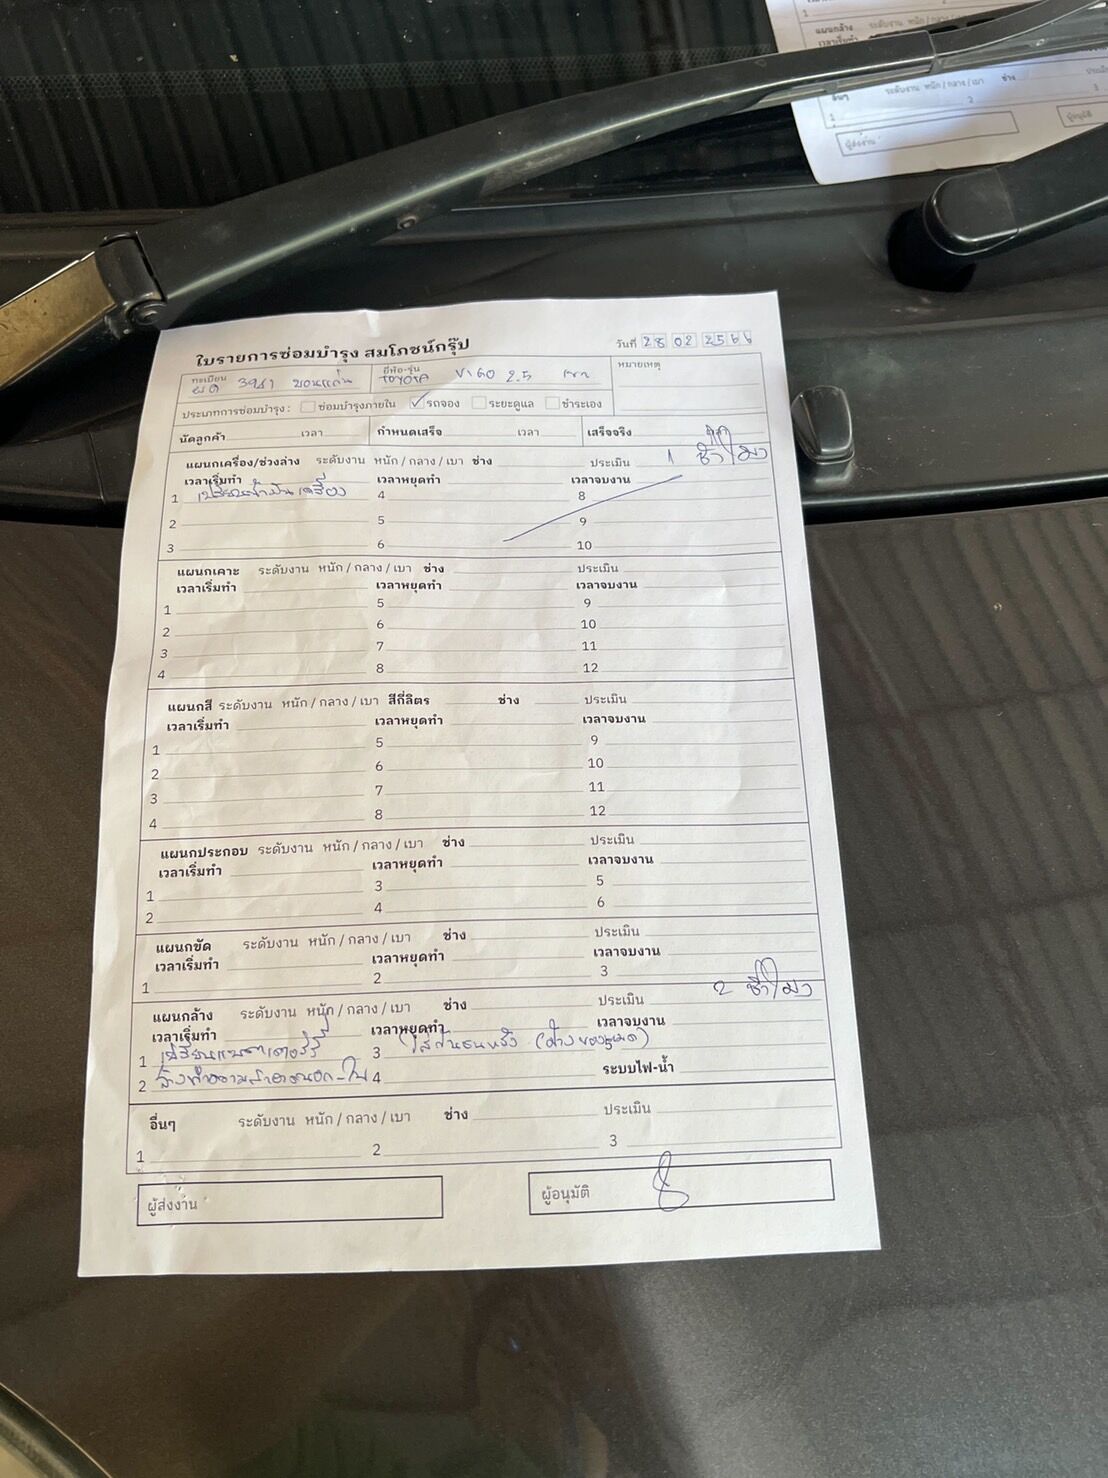 แผนกล้าง ระดับงาน หนัก / กลาง
เวลาเริ่มทำ
อื่นๆ ระดับงาน หนัก / กลาง / เบา ช่าง
1 2 3
ผู้ส่งงาน ผู้อนุมัติ
ใบรายการซ่อมบำรุง สมโภชน์กรุ๊ป วันที่ 28 02 2566
ทะเบียน ผด 3981 ขอนแก่น ยี่ห้อ-รุ่น TOYOTA VIGO 2.5 หมายเหตุ
ประเภทการซ่อมบำรุง : ซ่อมบำรุงภายใน รถจอง ระยะดูแล ชำระเอง
นัดลูกค้า เวลา กำหนดเสร็จ เวลา เสร็จจริง
แผนกเครื่อง/ช่วงล่าง ระดับงาน หนัก / กลาง / เบา ช่าง ประเมิน 1 ชั่วโมง
เวลาเริ่มทำ เวลาหยุดทำ เวลาจบงาน
1 เปลี่ยนน้ำมันเครื่อง 4 8
2 5 9
3 6 10
แผนกเคาะ ระดับงาน หนัก / กลาง / เบา ช่าง ประเมิน
เวลาเริ่มทำ เวลาหยุดทำ เวลาจบงาน
1 5 9
2 6 10
3 7 11
4 8 12
แผนกสี ระดับงาน หนัก / กลาง / เบา สีกี่ลิตร ช่าง ประเมิน
เวลาเริ่มทำ เวลาหยุดทำ เวลาจบงาน
1 5 9
2 6 10
3 7 11
4 8 12
แผนกประกอบ ระดับงาน หนัก / กลาง / เบา ช่าง ประเมิน
เวลาเริ่มทำ เวลาหยุดทำ เวลาจบงาน
1 3 5
2 4 6
แผนกขัด ระดับงาน หนัก / กลาง / เบา ช่าง ประเมิน
เวลาเริ่มทำ เวลาหยุดทำ เวลาจบงาน
1 2 3
แผนกล้าง ระดับงาน หนัก / กลาง / เบา ช่าง ประเมิน 2 ชั่วโมง
เวลาเริ่มทำ เวลาหยุดทำ เวลาจบงาน
1 เปลี่ยนแบตเตอร์รี่ 3 ใส่กันชนหลัง (ช่างของหมด) 5
2 ล้างทำความสะอาดนอก-ใน 4 ระบบไฟ-น้ำ
อื่นๆ ระดับงาน หนัก / กลาง / เบา ช่าง ประเมิน
1 2 3
ผู้ส่งงาน ผู้อนุมัติ